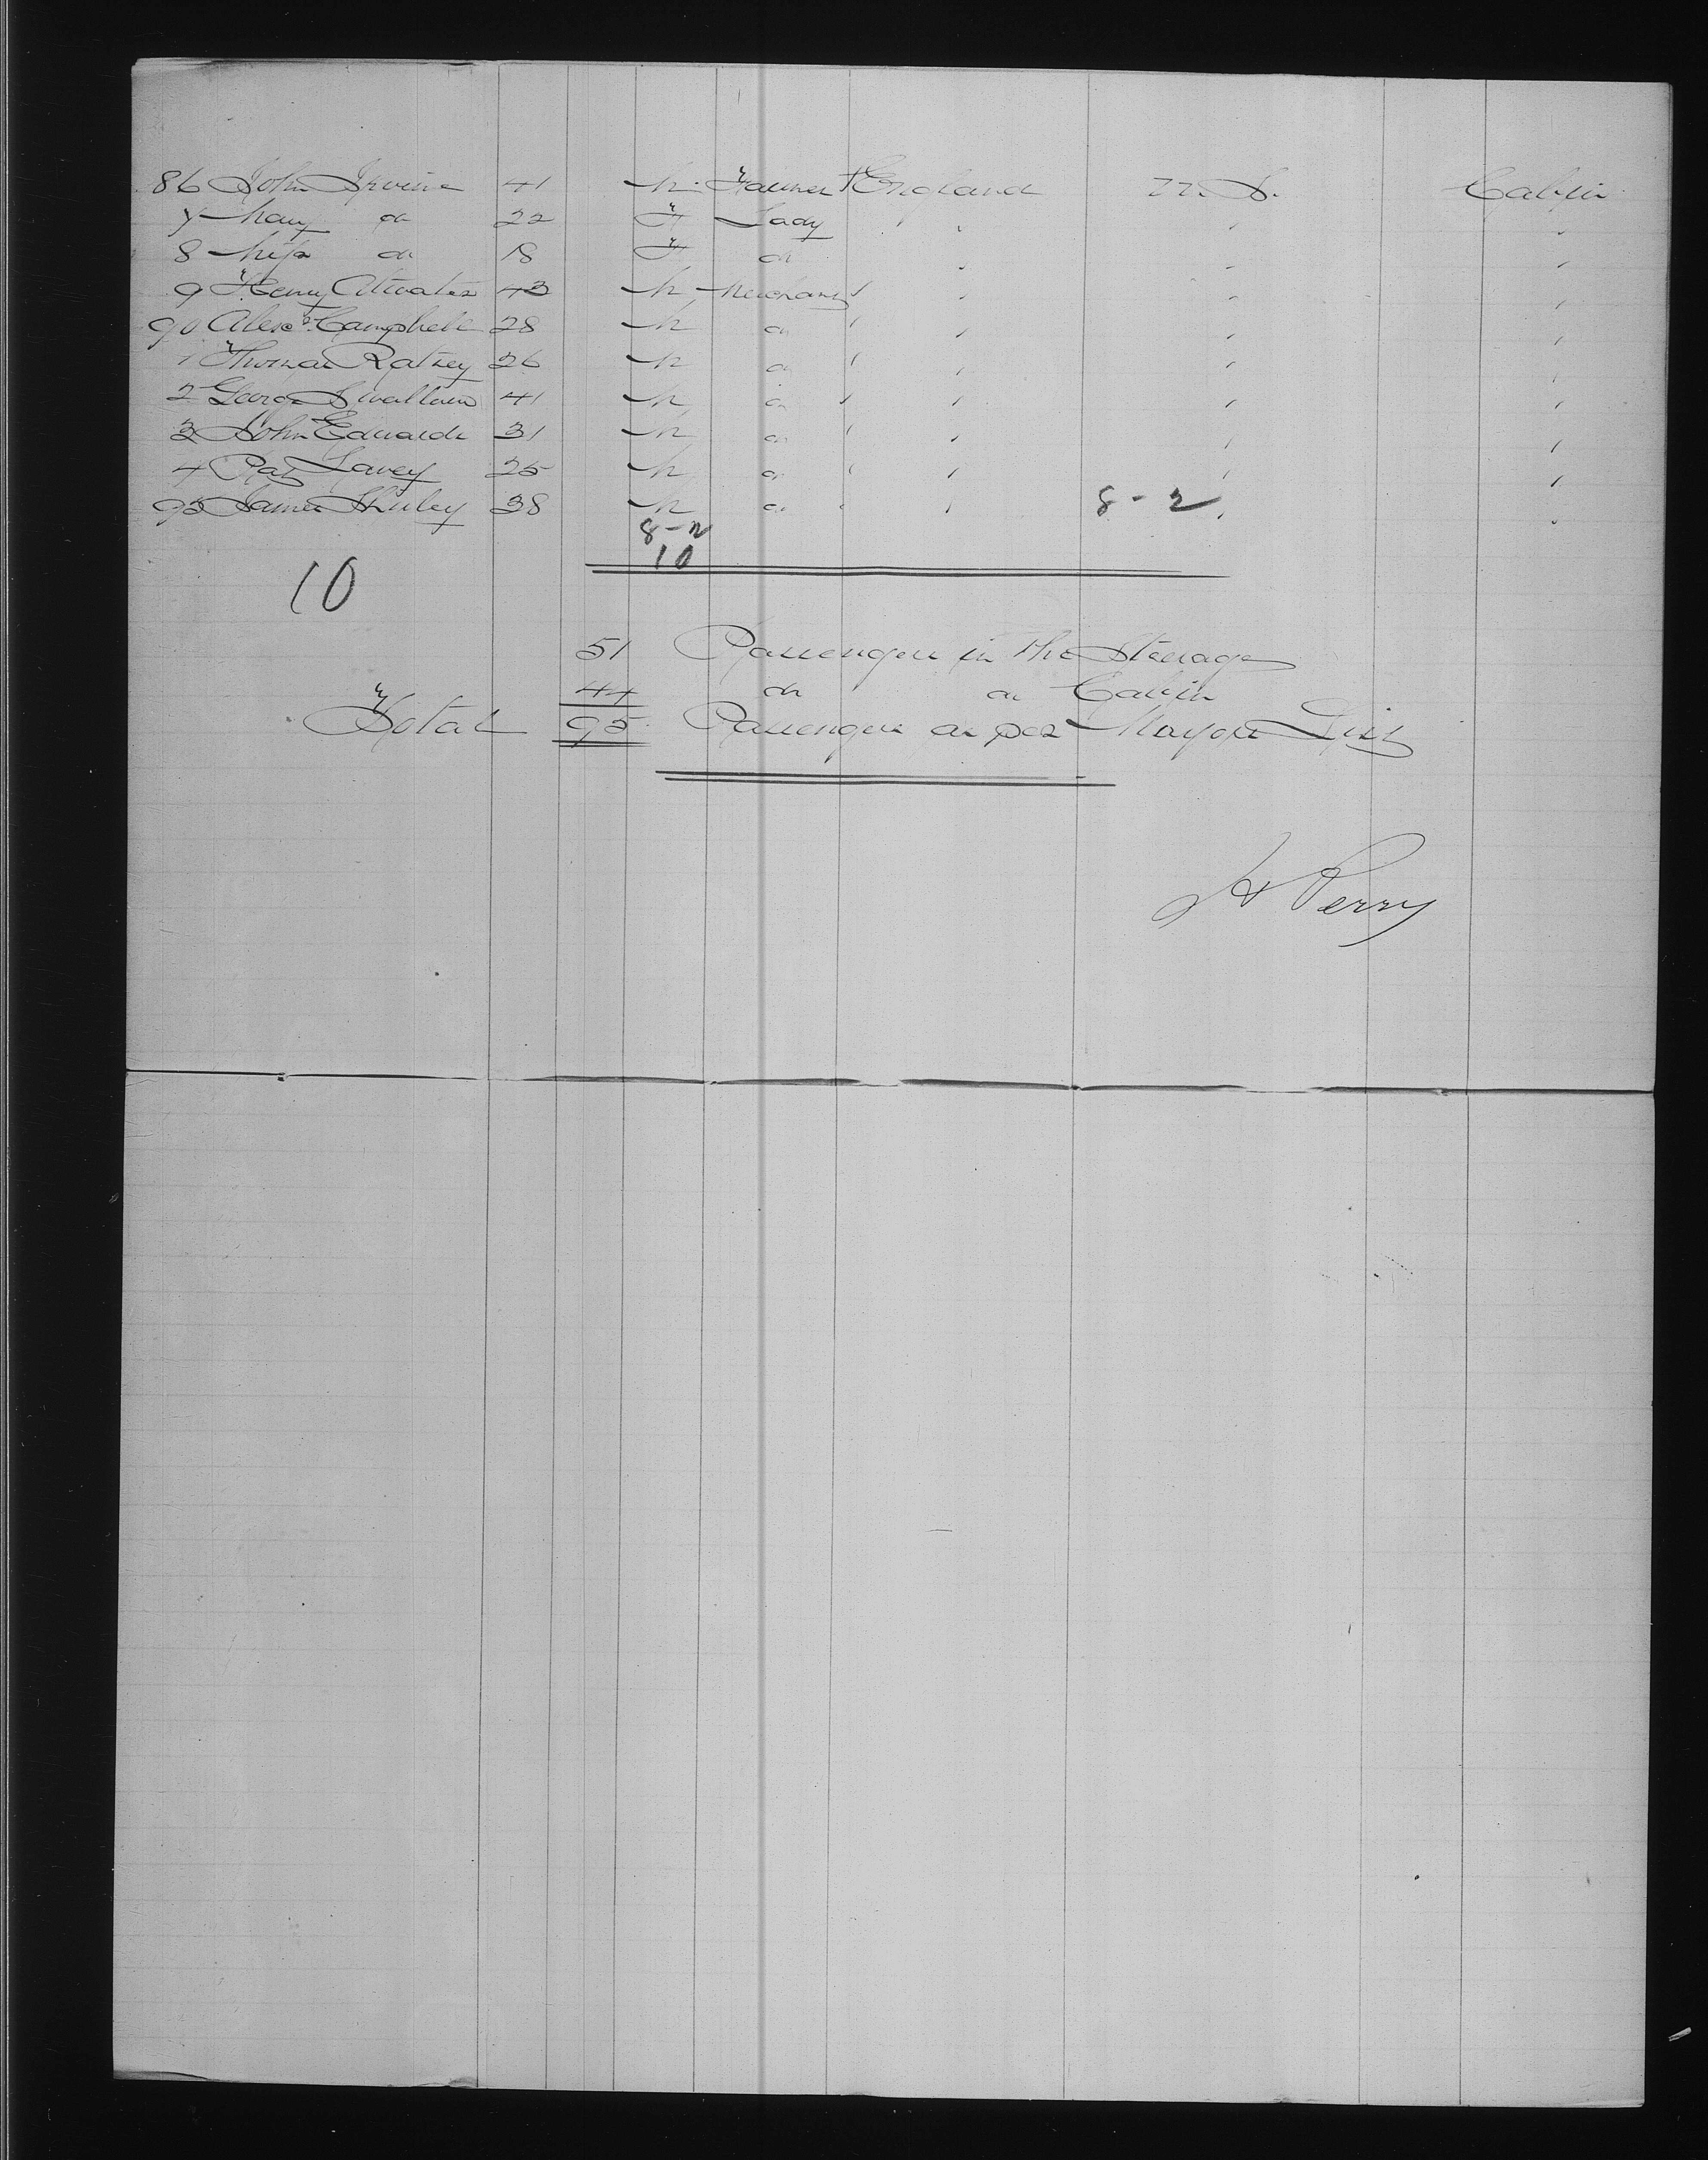 86 John Irvine 41 M. Farmer England U. S. Cabin
7 Mary do 22 F Lady " " " "
8 Miss do 18 F do " " "
9 Henry Atwater 43 M Merchant " " " "
90 Alexr Campbell 28 M do " " " "
1 Thomas Ratney 26 M do " " " "
2 George Swallow 41 M do " " " "
3 John Edwards 31 M do " " " "
4 Pat Lavey 25 M do " " " "
95 James Shirley 38 M do " " " "
8-2 8-2
10
10
51 Passengers in the Steerage
44 do do Cabin
Total 95 Passengers as per Mayors List
H Perry